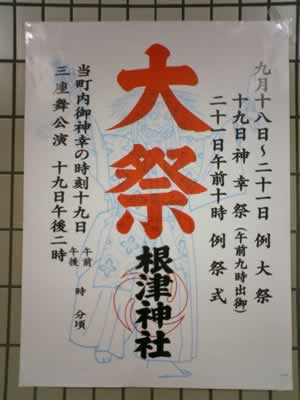 九月十八日～二十一日 例大祭
十九日神幸祭（午前九時出御）
二十一日午前十時 例祭式
大祭
根津神社
当町内御神幸の時刻十九日 午前 午後 時 分頃
三座舞公演 十九日午後二時